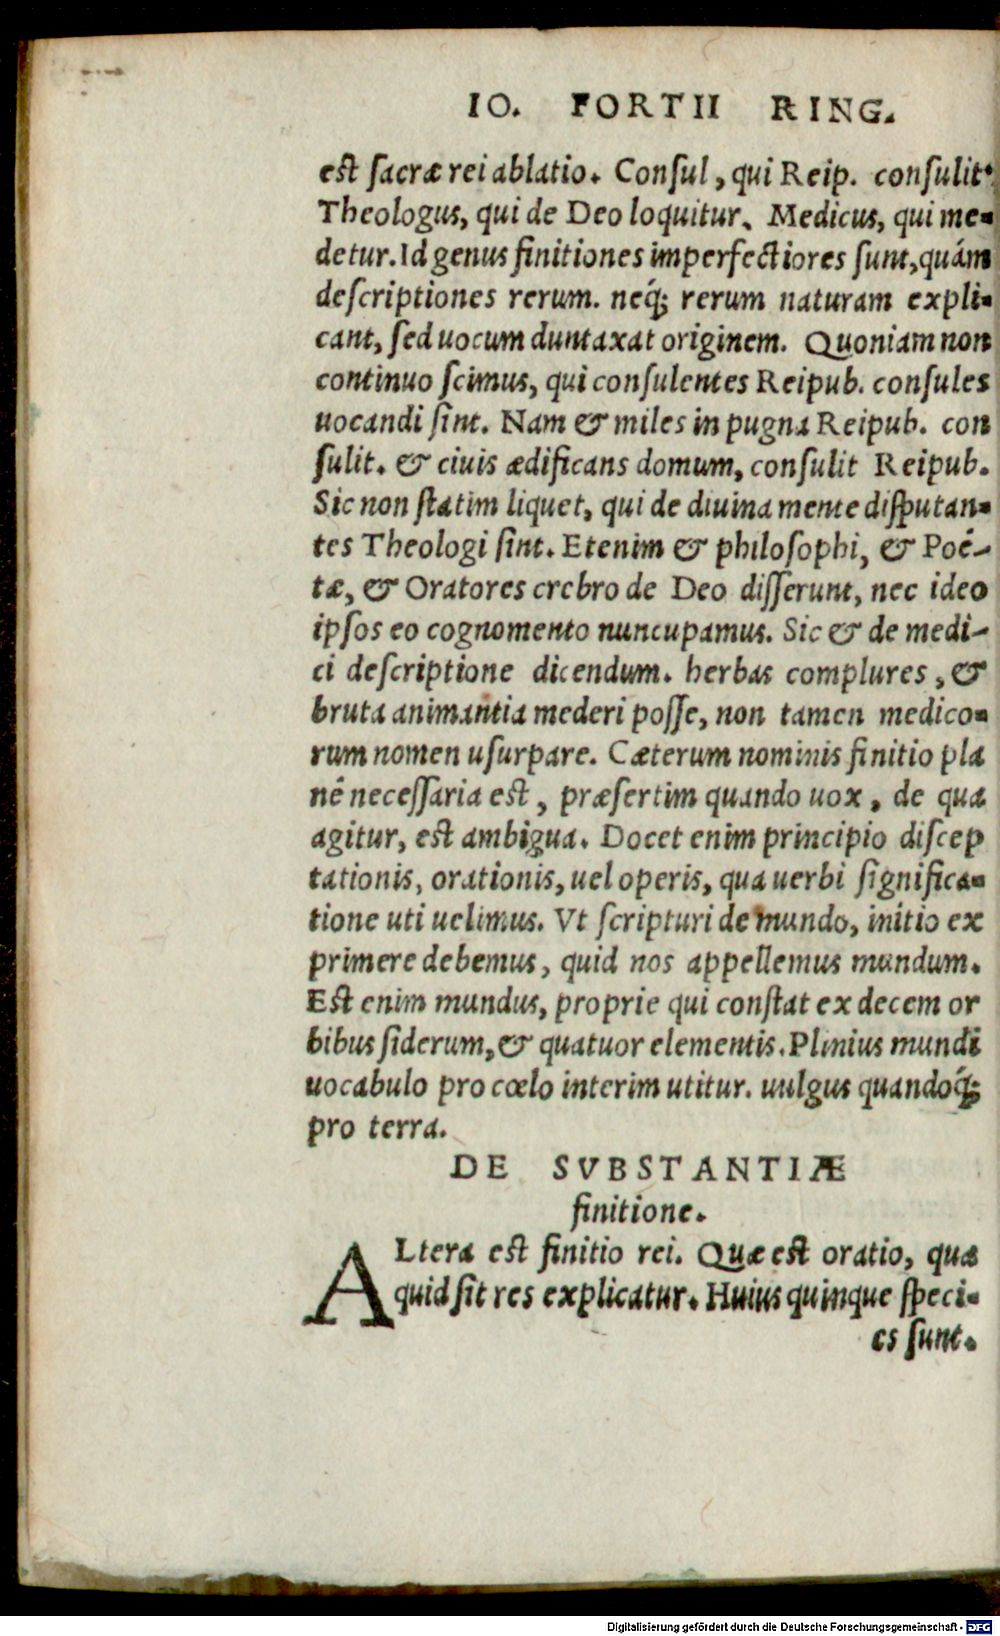 IO. FORTII RING.
est sacræ rei ablatio. Consul, qui Reip. consulit.
Theologus, qui de Deo loquitur. Medicus, qui me-
detur. Id genus finitiones imperfectiores sunt, quám
descriptiones rerum. neq́; rerum naturam expli-
cant, sed uocum duntaxat originem. Quoniam non
continuo scimus, qui consulentes Reipub. consules
uocandi sint. Nam & miles in pugna Reipub. con
sulit. & ciuis ædificans domum, consulit Reipub.
Sic non statim liquet, qui de diuina mente disputan-
tes Theologi sint. Etenim & philosophi, & Poë-
tæ, & Oratores crebro de Deo disserunt, nec ideo
ipsos eo cognomento nuncupamus. Sic & de medi-
ci descriptione dicendum. herbas complures, &
bruta animantia mederi posse, non tamen medico-
rum nomen usurpare. Cæterum nominis finitio pla
nê necessaria est, præsertim quando uox, de qua
agitur, est ambigua. Docet enim principio discep
tationis, orationis, uel operis, qua uerbi significa-
tione uti uelimus. Vt scripturi de mundo, initio ex
primere debemus, quid nos appellemus mundum.
Est enim mundus, proprie qui constat ex decem or
bibus siderum, & quatuor elementis. Plinius mundi
uocabulo pro cœlo interim utitur. uulgus quandoq́;
pro terra.
DE SVBSTANTIÆ
finitione.
ALtera est finitio rei. Quæ est oratio, qua
quid sit res explicatur. Huius quinque speci-
es sunt.
Digitalisierung gefördert durch die Deutsche Forschungsgemeinschaft - DFG